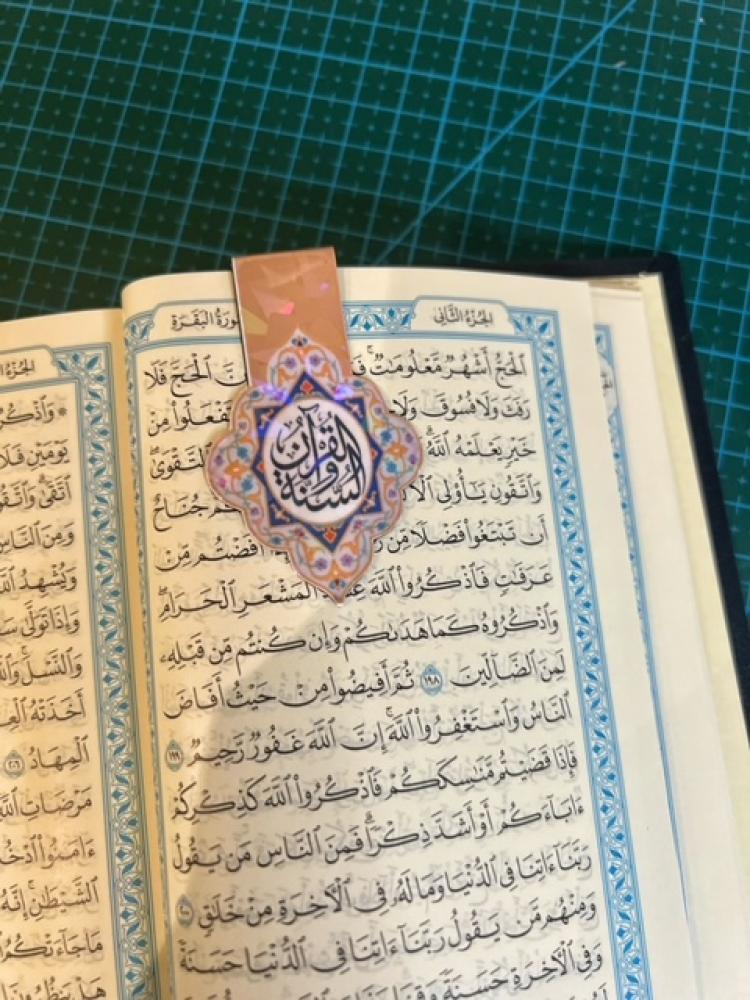 الجُزْءُ الثَّانِي
سُورَةُ البَقَرَةِ
ٱلْحَجُّ أَشْهُرٌ مَّعْلُومَٰتٌ ۚ ٱلْحَجَّ فَلَا
رَفَثَ وَلَا فُسُوقَ وَلَا تَفْعَلُوا۟ مِنْ
خَيْرٍ يَعْلَمْهُ ٱللَّهُ ۗ ٱلتَّقْوَىٰ ۚ
وَٱتَّقُونِ يَٰٓأُو۟لِى جُنَاحٌ
أَن تَبْتَغُوا۟ فَضْلًا مِّن أَفَضْتُم مِّنْ
عَرَفَٰتٍ فَٱذْكُرُوا۟ ٱللَّهَ ٱلْمَشْعَرِ ٱلْحَرَامِ ۖ
وَٱذْكُرُوهُ كَمَا هَدَىٰكُمْ وَإِن كُنتُم مِّن قَبْلِهِۦ
لَمِنَ ٱلضَّآلِّينَ ١٩٨ ثُمَّ أَفِيضُوا۟ مِنْ حَيْثُ أَفَاضَ
ٱلنَّاسُ وَٱسْتَغْفِرُوا۟ ٱللَّهَ ۚ إِنَّ ٱللَّهَ غَفُورٌ رَّحِيمٌ ١٩٩
فَإِذَا قَضَيْتُم مَّنَٰسِكَكُمْ فَٱذْكُرُوا۟ ٱللَّهَ كَذِكْرِكُمْ
ءَابَآءَكُمْ أَوْ أَشَدَّ ذِكْرًا ۗ فَمِنَ ٱلنَّاسِ مَن يَقُولُ
رَبَّنَآ ءَاتِنَا فِى ٱلدُّنْيَا وَمَا لَهُۥ فِى ٱلْءَاخِرَةِ مِنْ خَلَٰقٍ ٢٠٠
وَمِنْهُم مَّن يَقُولُ رَبَّنَآ ءَاتِنَا فِى ٱلدُّنْيَا حَسَنَةً
وَفِى ٱلْءَاخِرَةِ حَسَنَةً وَقِنَا
القرآن
والسنة
۞ وَٱذْكُرُ
يَوْمَيْنِ فَلَآ
ٱتَّقَىٰ ۗ وَٱتَّقُو
وَمِنَ ٱلنَّاسِ
وَيُشْهِدُ ٱللَّهَ
وَإِذَا تَوَلَّىٰ
وَٱلنَّسْلَ ۗ وَٱللَّهُ
أَخَذَتْهُ
ٱلْمِهَادُ ٢٠٦
مَرْضَاتِ ٱللَّهِ
ءَامَنُوا۟
ٱلشَّيْطَٰنِ ۚ إِنَّهُۥ
مَا جَآءَتْكُمُ
هَلْ يَنظُرُونَ